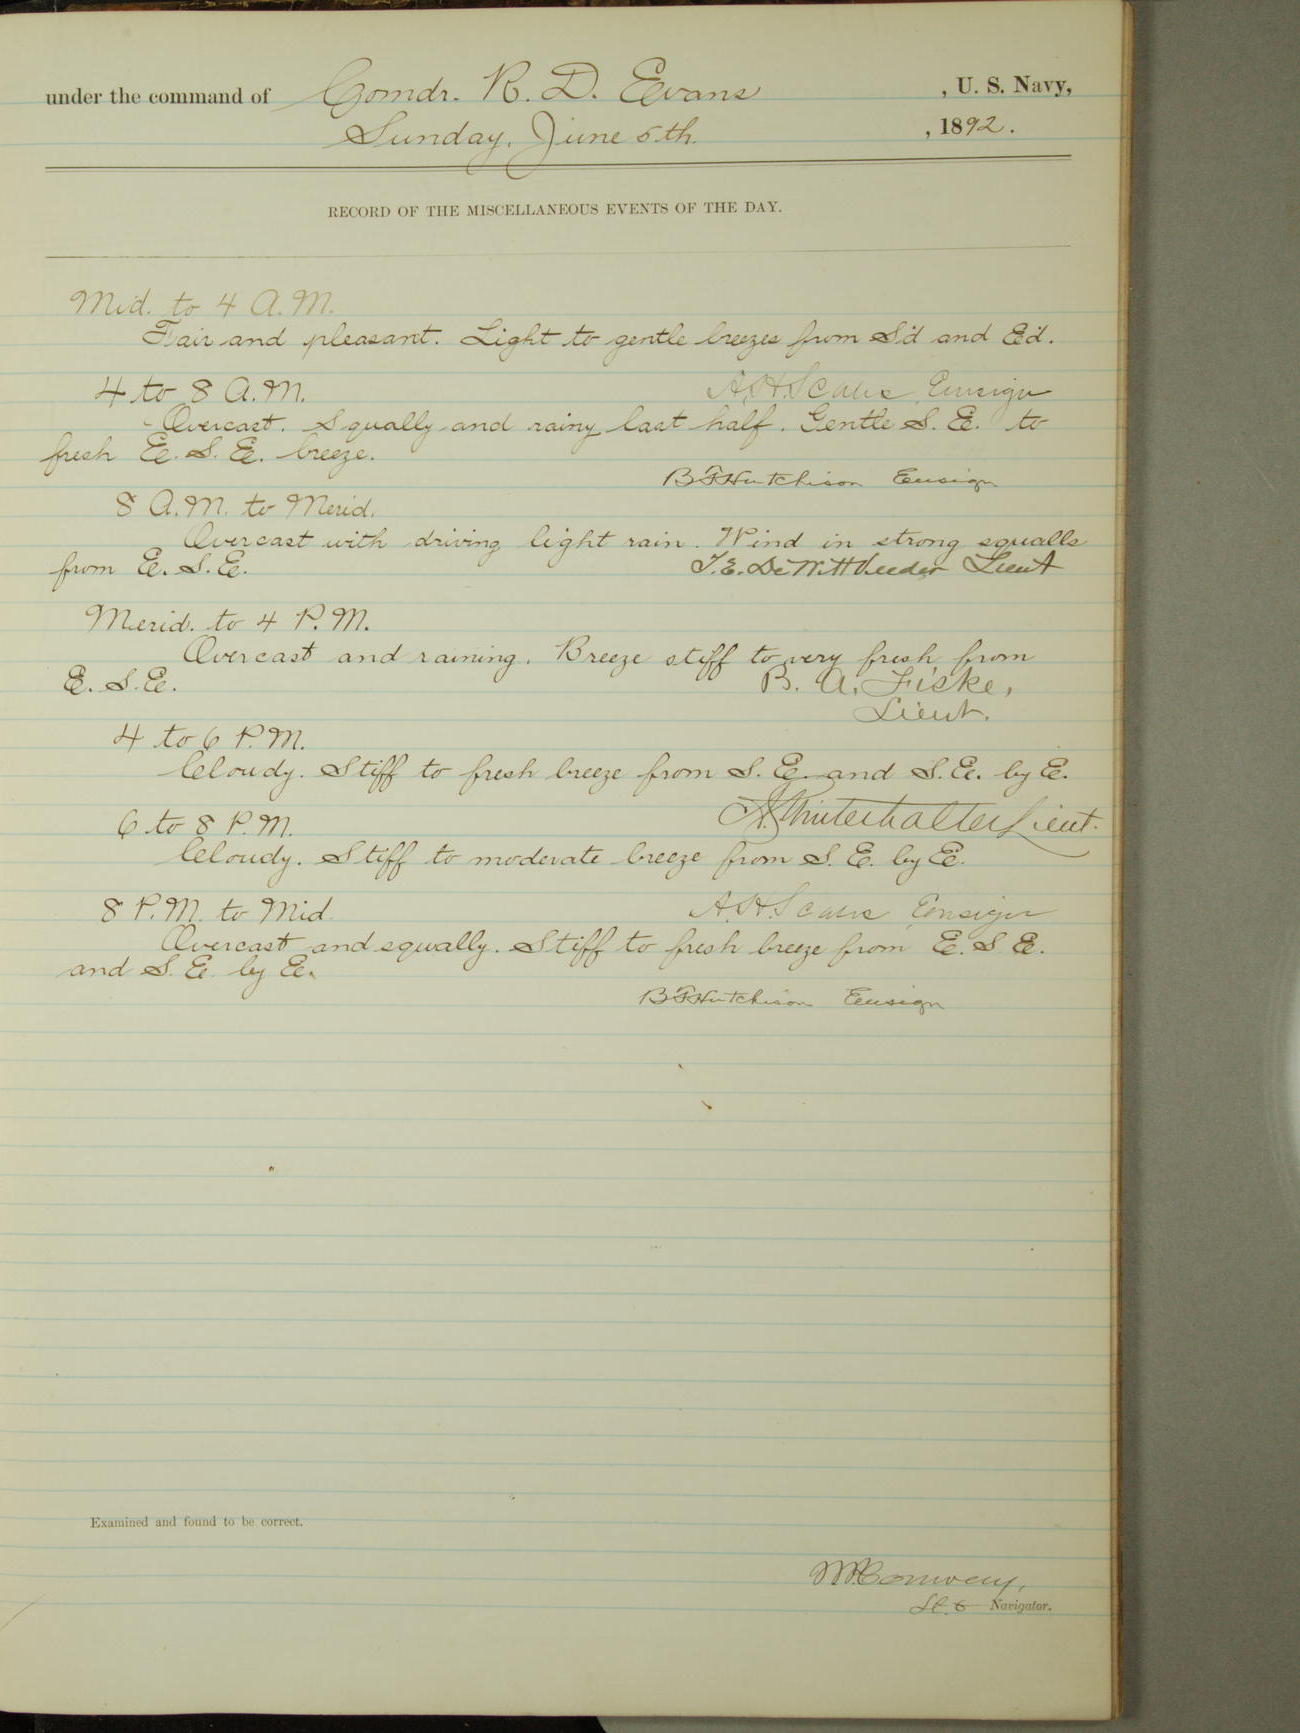 under the command of Comdr. R. D. Evans , U. S. Navy,
Sunday, June 5th. , 1892.
RECORD OF THE MISCELLANEOUS EVENTS OF THE DAY.
Mid. to 4 A.M.
Fair and pleasant. Light to gentle breezes from S'd and E'd.
A.H. Scales, Ensign
4 to 8 A.M.
Overcast. Squally and rainy last half. Gentle S. E. to
fresh E. S. E. breeze.
B F Hutchison Ensign
8 A.M. to Merid.
Overcast with driving light rain. Wind in strong squalls
from E. S. E.
T. E. DeWitt Veeder Lieut
Merid. to 4 P.M.
Overcast and raining. Breeze stiff to very fresh from
E. S. E.
B. A. Fiske,
Lieut.
4 to 6 P.M.
Cloudy. Stiff to fresh breeze from S. E. and S. E. by E.
A. G. Winterhalter Lieut.
6 to 8 P.M.
Cloudy. Stiff to moderate breeze from S. E. by E.
A.H. Scales, Ensign
8 P.M. to Mid.
Overcast and squally. Stiff to fresh breeze from E. S E.
and S. E. by E.
B F Hutchison Ensign
Examined and found to be correct.
W.P. Conway,
Lt. & Navigator.